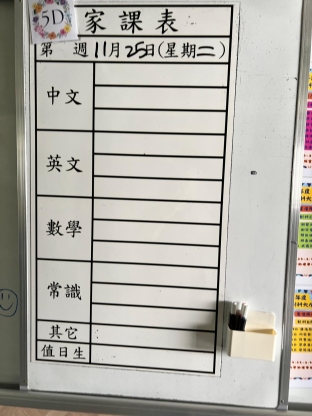 5D
家課表
第 週 11月25日(星期二)
中文
英文
數學
常識
其它
值日生